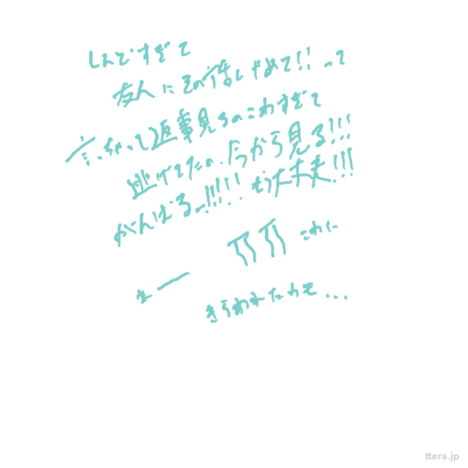 しんどすぎて
友人にその話しやめて!!って
言っちゃって返事見るのこわすぎて
逃げてたの、今から見る!!!
がんばる〜!!!!! もう大丈夫!!!
これに
きらわれたわそ...
tters.jp